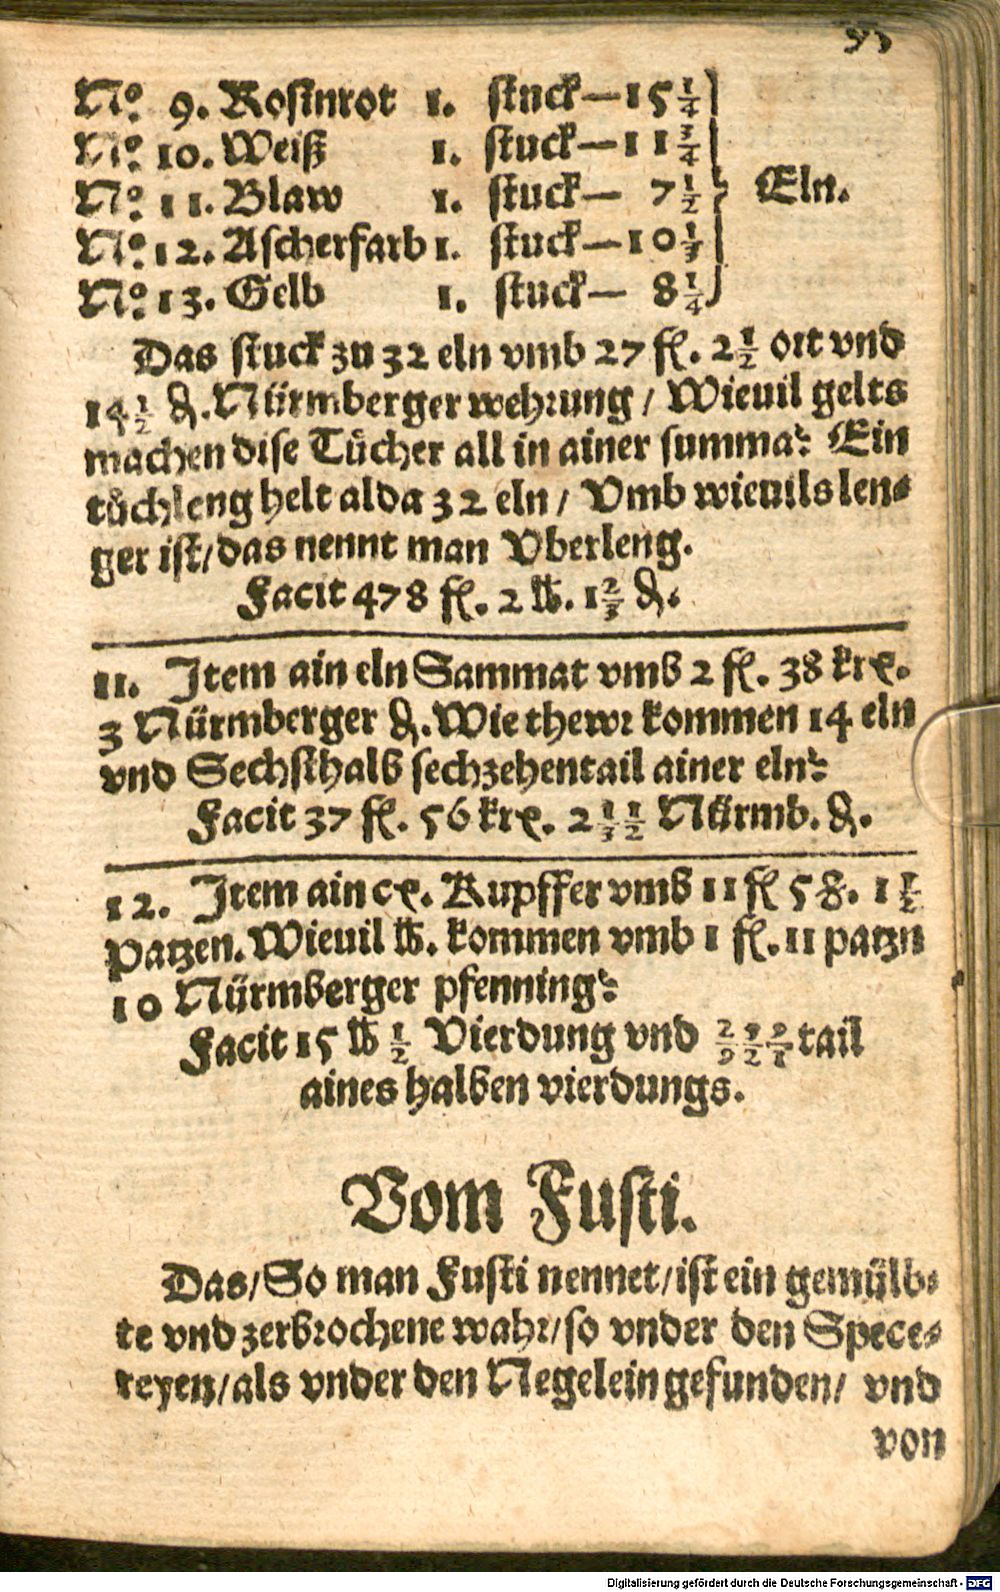 N°. 9. Rostnrot 1. stuck—15 1/4
N°. 10. Weiß 1. stuck—11 3/4
N°. 11. Blaw 1. stuck— 7 1/2 Eln.
N°. 12. Ascherfarb 1. stuck—10 1/3
N°. 13. Gelb 1. stuck— 8 1/4
Das stuck zu 32 eln vmb 27 fl. 2 1/2 ort vnd
14 1/2 ₰. Nürmberger wehrung / Wieuil gelts
machen dise Tücher all in ainer summa? Ein
tůchleng helt alda 32 eln / Vmb wieuils len⸗
ger ist/das nennt man Vberleng.
Facit 478 fl. 2 ℔. 1 2/3 ₰.
11. Item ain eln Sammat vmb 2 fl. 38 krx.
3 Nürmberger ₰. Wie thewr kommen 14 eln
vnd Sechsthalb sechzehentail ainer eln?
Facit 37 fl. 56 krx. 2 1/3 1/2 Nürmb. ₰.
12. Item ain cx. Kupffer vmb 11 fl 5 ß. 1 1/2
Patzen. Wieuil ℔. kommen vmb 1 fl. 11 patzn
10 Nürmberger pfenning?
Facit 15 ℔ 1/2 Vierdung vnd tail
aines halben vierdungs.
Vom Fusti.
Das/So man Fusti nennet/ist ein gemülb⸗
te vnd zerbrochene wahr/so vnder den Spece⸗
reyen/als vnder den Negelein gefunden/ vnd
von
Digitalisierung gefördert durch die Deutsche Forschungsgemeinschaft - DFG